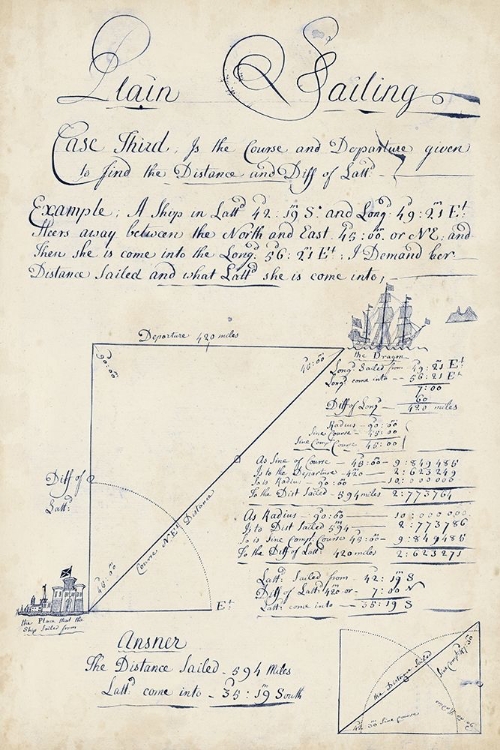 Plain Sailing
Case Third, Is the Course and Departure given
to find the Distance and Diff of Latt.d
Example, A Ship is in Latt.d 42:19 S.o and Long.d 49:21 E.t
Steers away between the North and East 45:00 or NE, and
Then she is come into the Long.d 56:21 E.t; I Demand her
Distance Sailed and what Latt.d she is come into,
Departure 420 miles
90:00
45:00
the Dragon
Long.d Sailed from 49:21 E.t
Long.d came into 56:21 E.t
7:00
60
Diff of Long. 420 miles
Radius 90:00
Sine Course 45:00
Sine Comp Course 45:00
As Sine of Course 45:00 - 9:849485
Is to the Departure 420 2:623249
So is Radius 90:00 10:000000
To the Dist Sailed - 594 miles 2:773764
As Radius - 90:00 10:000000
Is to Dist Sailed 594 2:773786
So is Sine Comp.t Course 45:00 - 9:849485
To the Diff of Latt.d 420 miles 2:623271
Latt.d Sailed from 42:19 S
Diff of Latt.d 420 or 7:00 N
Latt.d come into 35:19 S
Diff of
Latt.d
Course NE.t Distance
45:00
E.t
the Place that the
Ship Sailed from
Answer
The Distance Sailed - 594 Miles
Latt.d come into - 35:19 South
the Distance Sailed
Sine Course